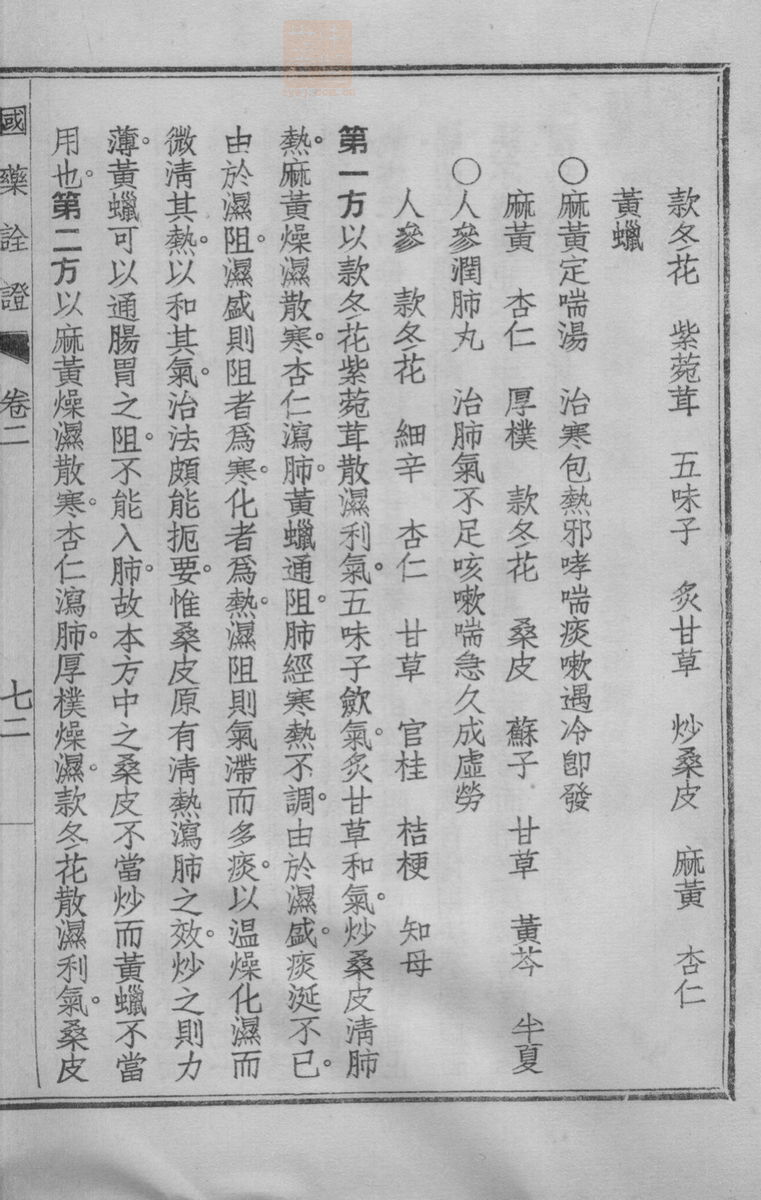 款冬花　紫菀茸　五味子　炙甘草　炒桑皮　麻黃　杏仁
黃蠟
○麻黃定喘湯　治寒包熱邪哮喘痰嗽遇冷卽發
麻黃　杏仁　厚樸　款冬花　桑皮　蘇子　甘草　黃芩　半夏
○人參潤肺丸　治肺氣不足咳嗽喘急久成虛勞
人參　款冬花　細辛　杏仁　甘草　官桂　桔梗　知母
第一方以款冬花紫菀茸散濕利氣。五味子歛氣。炙甘草和氣。炒桑皮淸肺
熱。麻黃燥濕散寒。杏仁瀉肺。黃蠟通阻。肺經寒熱不調。由於濕盛。痰涎不已。
由於濕阻。濕盛則阻者爲寒。化者爲熱。濕阻則氣滯而多痰。以温燥化濕而
微淸其熱。以和其氣。治法頗能扼要。惟桑皮原有淸熱瀉肺之效。炒之則力
薄。黃蠟可以通腸胃之阻。不能入肺。故本方中之桑皮不當炒而黃蠟不當
用也。第二方以麻黃燥濕散寒。杏仁瀉肺。厚樸燥濕。款冬花散濕利氣。桑皮
國藥詮證　卷二　七二